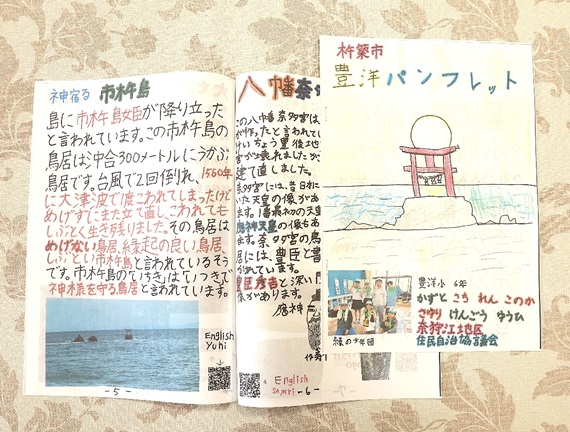 神宿る 市杵島
島に市杵島女臣が降り立った
と言われています。この市杵島の
鳥居は、沖合300メートルにうかぶ
鳥居です。台風で2回倒れ、1560年
に大津波で1度こわれてしまったけど
めげずにまた立て直し、こわれても
しぶとく生き残りました。その鳥居は
めげない鳥居、縁起の良い鳥居、
しぶとい市杵島と言われているそう
です。市杵島の「いちき」は「いつき」で
神様を守る鳥居と言われています。
English
Yuhi
-5-
八幡奈
この八幡奈多宮は、
建て直しました。
多宮には、昔日本に
いた天皇の像があ
ます。1番最初の天皇
応神天皇の像もあ
ます。奈多宮の鳥
居には、豊臣と書
かれています。
豊臣秀吉と深い
係があります。
応神
English
sayuri
-6-
-7-
杵築市
豊洋パンフレット
緑の少年団
豊洋小 6年
かずと こち れん このか
さゆり けんごう ゆうひ
奈狩江地区
住民自治協議会